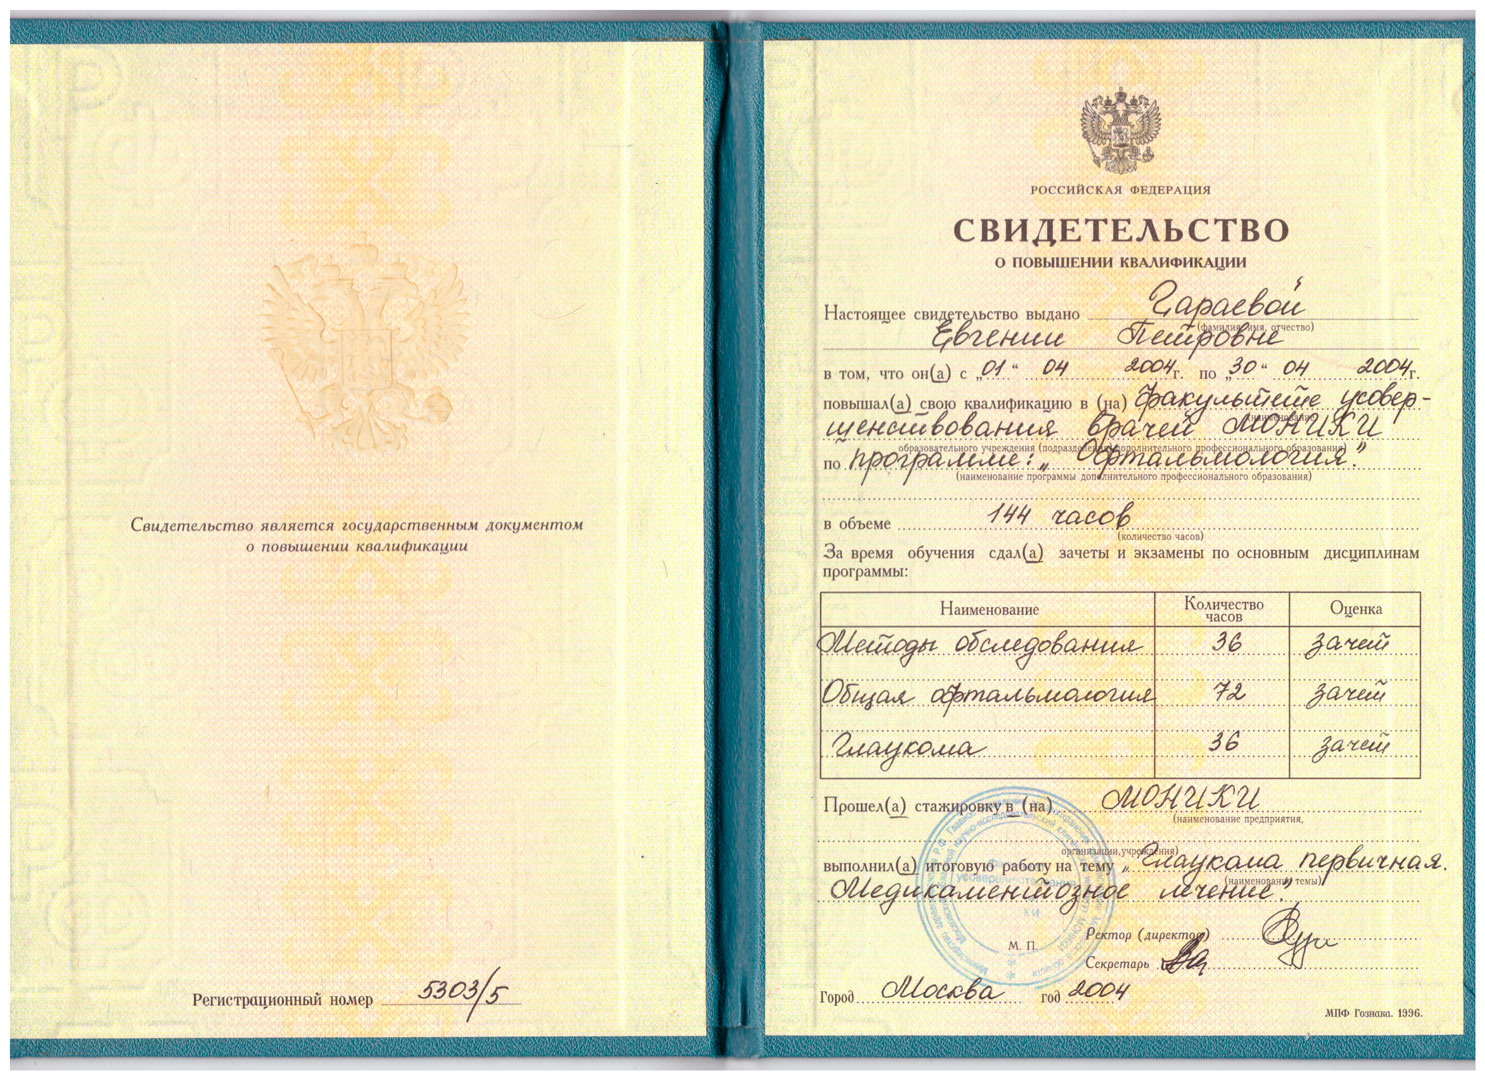 Свидетельство является государственным документом
о повышении квалификации
Регистрационный номер 5303/5
РОССИЙСКАЯ ФЕДЕРАЦИЯ
СВИДЕТЕЛЬСТВО
О ПОВЫШЕНИИ КВАЛИФИКАЦИИ
Настоящее свидетельство выдано Гараевой
(фамилия, имя, отчество)
Евгении Петровне
в том, что он(а) с „01“ 04 2004г. по „30“ 04 2004г.
повышал(а) свою квалификацию в (на) факультете усовер-
(наименование)
шенствования врачей МОНИКИ
образовательного учреждения (подразделения) дополнительного профессионального образования)
по программе: „Офтальмология."
(наименование программы дополнительного профессионального образования)
в объеме 144 часов
(количество часов)
За время обучения сдал(а) зачеты и экзамены по основным дисциплинам
программы:
Наименование Количество часов Оценка
Методы обследования 36 зачет
Общая офтальмология 72 зачет
Глаукома 36 зачет
Прошел(а) стажировку в (на) МОНИКИ
(наименование предприятия,
организации, учреждения)
выполнил(а) итоговую работу на тему „Глаукома первичная.
(наименование темы)
Медикаментозное лечение."
М. П.
Ректор (директор)
Секретарь
Город Москва год 2004
МПФ Гознака. 1996.